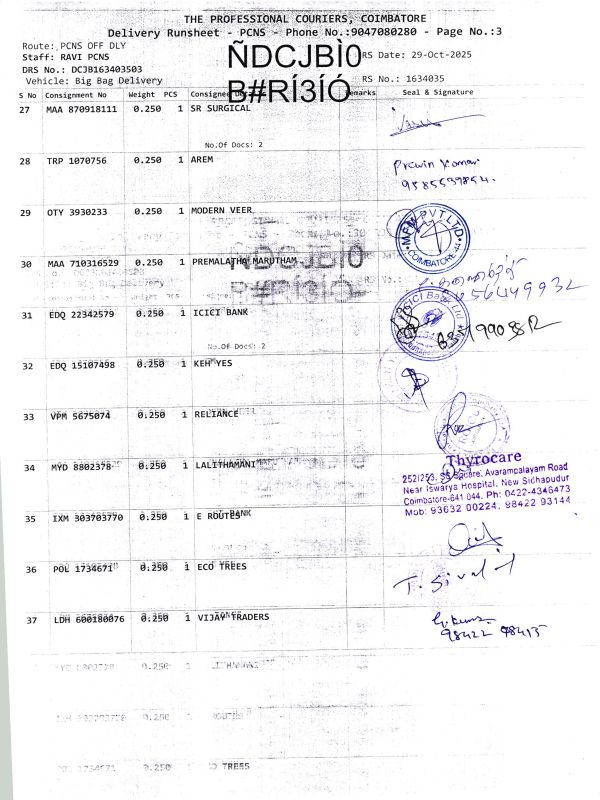 THE PROFESSIONAL COURIERS, COIMBATORE
Delivery Runsheet - PCNS - Phone No.:9047080280 - Page No.:3
Route: PCNS OFF DLY
ÑDCJBÌ0
RS Date: 29-Oct-2025
Staff: RAVI PCNS
DRS No.: DCJB163403503
B#RÍ3ÍÓ
RS No.: 1634035
Vehicle: Big Bag Delivery
S No Consignment No Weight PCS Consignee Details Remarks Seal & Signature
27 MAA 870918111 0.250 1 SR SURGICAL
No.Of Docs: 2
28 TRP 1070756 0.250 1 AREM
Prewin Kumar
9585539854.
29 OTY 3930233 0.250 1 MODERN VEER
MFW PVT LTD
COIMBATORE
30 MAA 710316529 0.250 1 PREMALATHA MARUTHAM
ÑDCJBÌ0
B#RÍ3ÍÓ
Big Bag Delivery
56449932
31 EDQ 22342579 0.250 1 ICICI BANK
ICICI Bank Ltd
No.Of Docs: 2
32 EDQ 15107498 0.250 1 KEH YES
33 VPM 5675074 0.250 1 RELIANCE
34 MYD 8802378 0.250 1 LALITHAMANI
Thyrocare
252/253, SS Square, Avarampalayam Road
Near Iswarya Hospital, New Sidhapudur
Coimbatore-641 044. Ph: 0422-4346473
Mob: 93632 00224, 98422 93144
35 IXM 303703770 0.250 1 E ROUTES
36 POL 1734671 0.250 1 ECO TREES
37 LDH 600180076 0.250 1 VIJAY TRADERS
98422 98415
0.250
303703770 0.250
1734671 0.250 TREES